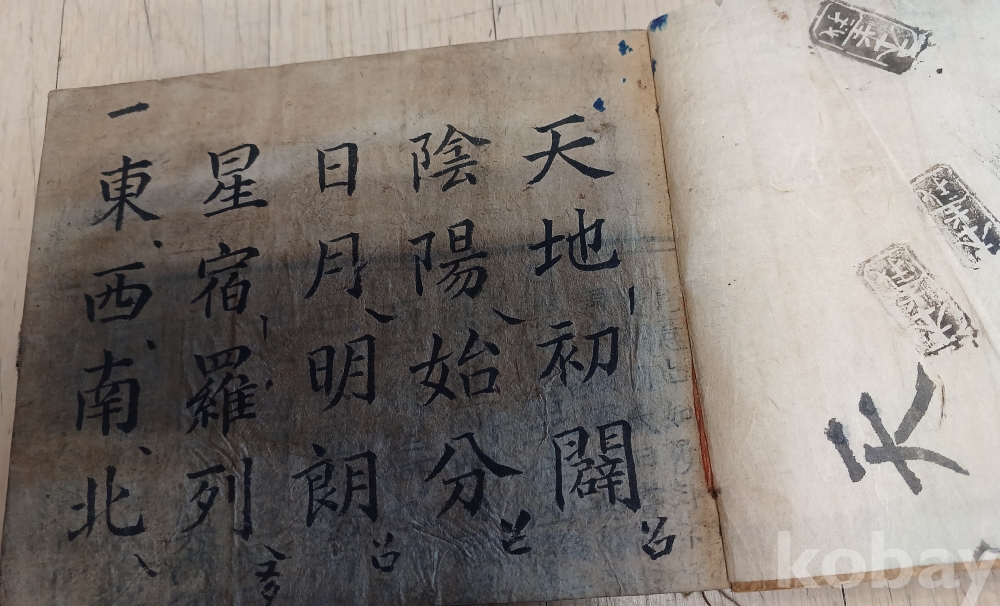 天地初闢
陰陽始分
日月明朗
星宿羅列
一東西南北
kobay